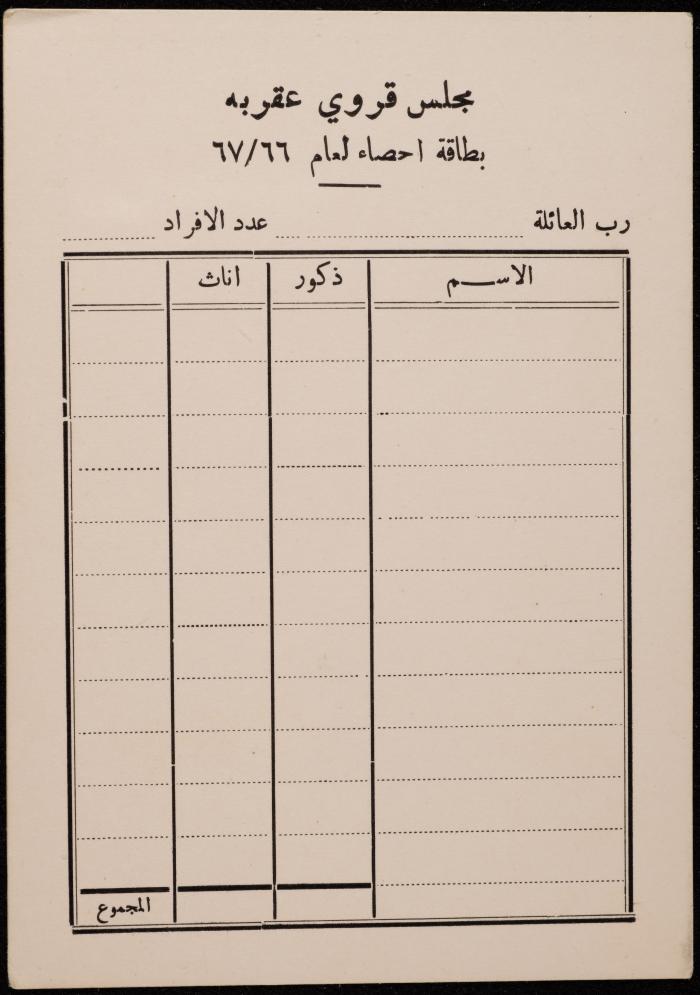 مجلس قروي عقربه
بطاقة احصاء لعام ٦٧/٦٦
رب العائلة ............ عدد الافراد ............
الاســم ذكور اناث
المجموع